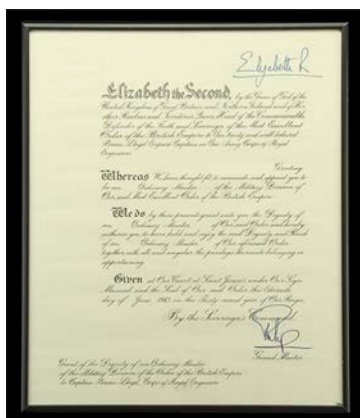 Elizabeth R
Elizabeth the Second, by the Grace of God of the
United Kingdom of Great Britain and Northern Ireland and of Her
other Realms and Territories Queen, Head of the Commonwealth,
Defender of the Faith and Sovereign of the Most Excellent
Order of the British Empire to Our trusty and well beloved
Lloyd Esquire Captain in Our Army Corps of Royal
Engineers
Greeting
Whereas We have thought fit to nominate and appoint you to
be an Ordinary Member of the Military Division of
Our said Most Excellent Order of the British Empire
We do by these presents grant unto you the Dignity of
an Ordinary Member of Our said Order and hereby
authorise you to have hold and enjoy the said Dignity and Rank
of an Ordinary Member of Our aforesaid Order
together with all and singular the privileges thereunto belonging or
appertaining
Given at Our Court at Saint James's under Our Sign
Manual and the Seal of Our said Order this
day of June in the year of Our Reign
By the Sovereign's Command
Grand Master
Grant of the Dignity of an Ordinary Member
of the Military Division of the Order of the British Empire
to Captain Lloyd, Corps of Royal Engineers